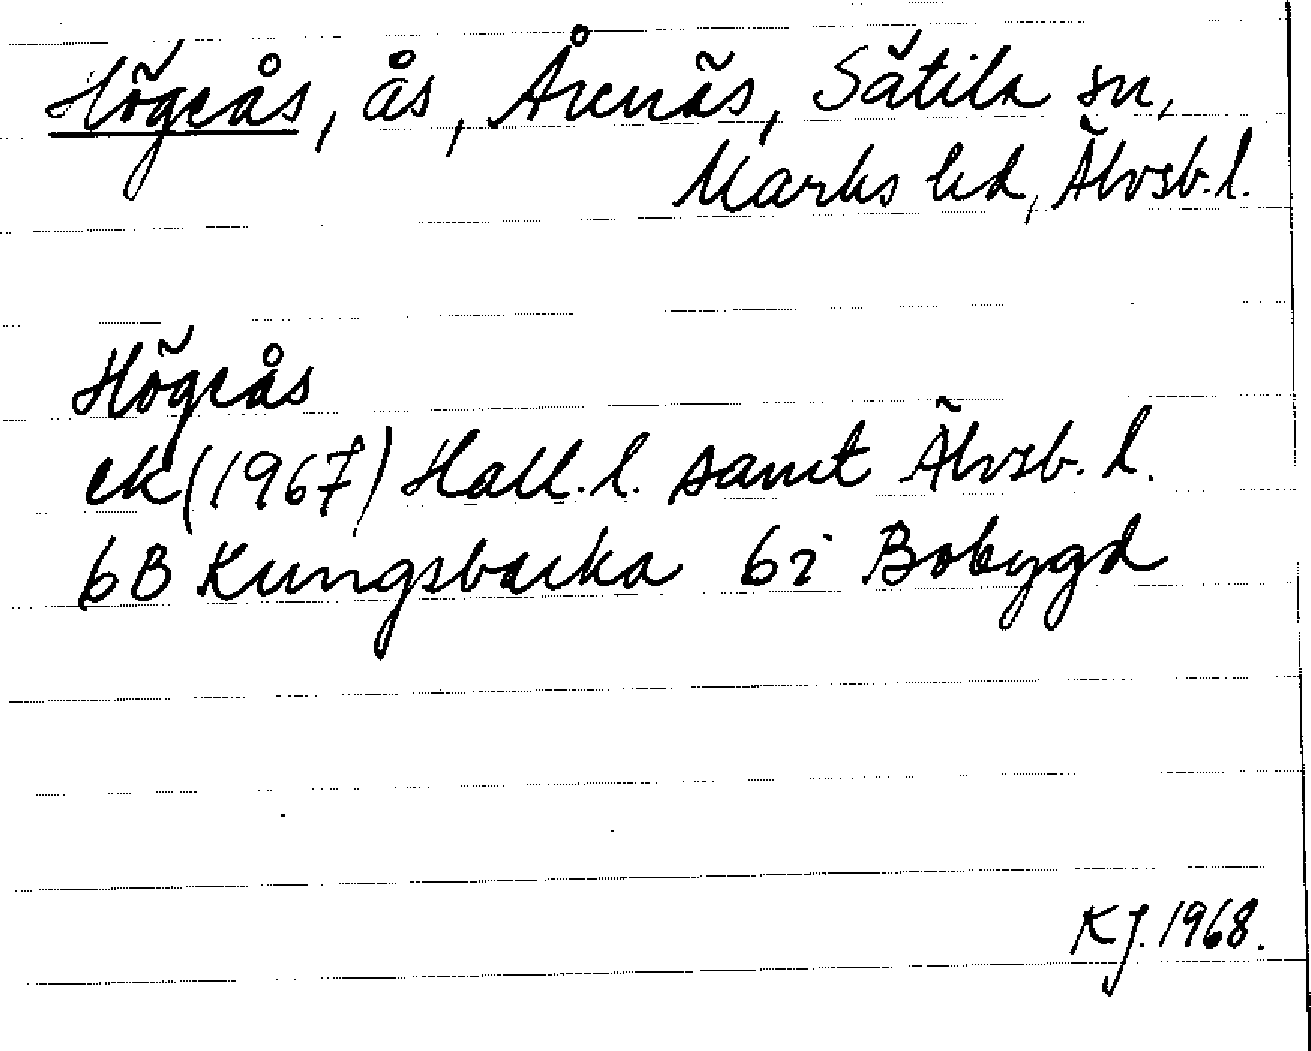 Högeås, ås, Årenäs, Sätila sn,
Marks hd, Älvsb. l.
Högeås
ek (1967) Hall. l. samt Älvsb. l.
6B Kungsbacka 6i Bobygd
KJ. 1968.